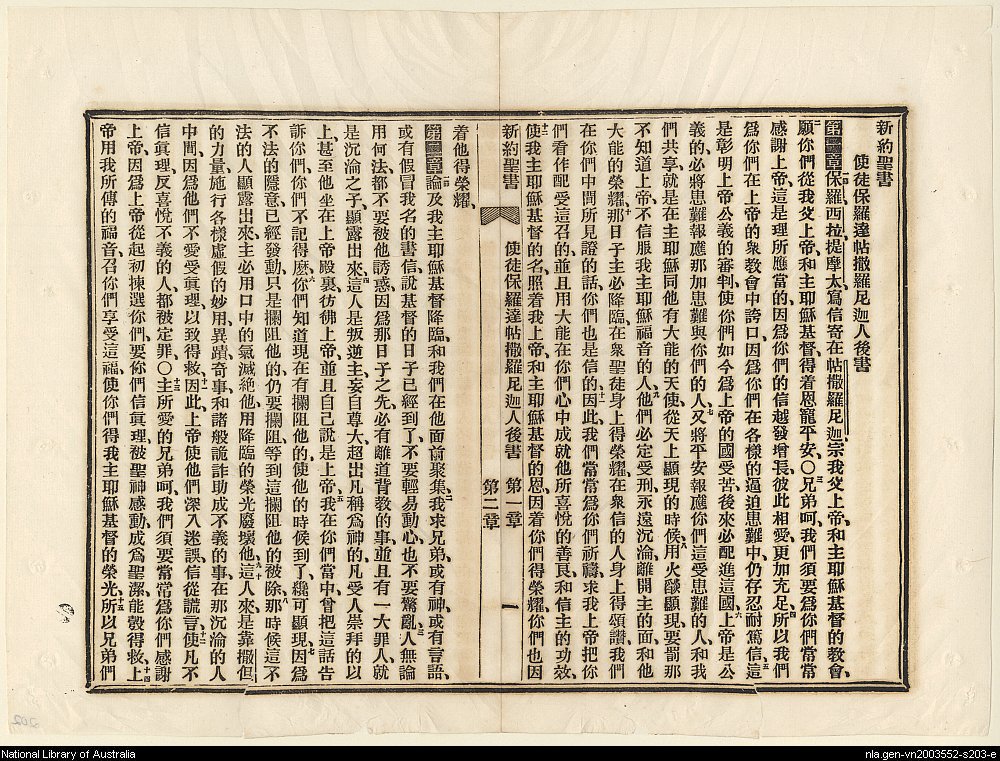 新約聖書
使徒保羅達帖撒羅尼迦人後書
第一章保羅西拉提摩太、寫信寄在帖撒羅尼迦宗我父上帝、和主耶穌基督的教會、
願你們從我父上帝、和主耶穌基督、得着恩寵平安、〇兄弟呵、我們須要爲你們常常
感謝上帝、這是理所應當的、因爲你們的信越發增長、彼此相愛、更加充足、所以我們
爲你們在上帝的衆教會中誇口、因爲你們在各樣的逼迫患難中、仍存忍耐篤信、這
是彰明上帝公義的審判、使你們如今爲上帝的國受苦、後來必配進這國、上帝是公
義的、必將患難報應那加患難與你們的人、又將平安報應你們這受患難的人、和我
們共享、就是在主耶穌同他有大能的天使、從天上顯現的時候、用火燄顯現、要罰那
不知道上帝、不信服我主耶穌福音的人、他們必定受刑、永遠沉淪、離開主的面、和他
大能的榮耀、那日子主必降臨、在衆聖徒身上得榮耀、在衆信的人身上得頌讚、我們
在你們中間所見證的話、你們也是信的、因此、我們常常爲你們祈禱、求我上帝把你
們看作配受這召的、並且用大能在你們心中成就他所喜悅的善良、和信主的功效、
使我主耶穌基督的名、照着我上帝、和主耶穌基督的恩、因着你們得榮耀、你們也因
新約聖書 使徒保羅達帖撒羅尼迦人後書 第一章 第二章 一
着他得榮耀、
第二章論及我主耶穌基督降臨、和我們在他面前聚集、我求兄弟、或有神、或有言語、
或有假冒我名的書信、說基督的日子已經到了、不要輕易動心、也不要驚亂、人無論
用何法、都不要被他誘惑、因爲那日子之先、必有離道背教的事、並且有一大罪人、就
是沉淪之子、顯露出來、這人是叛逆主、妄自尊大、超出凡稱爲神的、凡受人崇拜的、以
上、甚至他坐在上帝殿裏、彷彿上帝、並且自己說是上帝、我在你們當中、曾把這話告
訴你們、你們不記得麼、你們知道現在有攔阻他的、使他的時候到了、纔可顯現、因爲
不法的隱意、已經發動、只是攔阻他的、仍要攔阻、等到這攔阻他的被除、那時候這不
法的人顯露出來、主必用口中的氣滅絕他、用降臨的榮光廢壞他、這人來、是靠撒但
的力量、施行各樣虛假的妙用、異蹟、奇事、和諸般詭詐、助成不義的事、在那沉淪的人
中間、因爲他們不愛受眞理、以致得救、因此上帝使他們深入迷誤、信從謊言、使凡不
信眞理、反喜悅不義的人、都被定罪、〇主所愛的兄弟呵、我們須要常常爲你們感謝
上帝、因爲上帝從起初揀選你們、要你們信眞理、被聖神感動、成爲聖潔、能彀得救、上
帝用我所傳的福音、召你們享受這福、使你們得我主耶穌基督的榮光、所以兄弟們
202
National Library of Australia
nla.gen-vn2003552-s203-e